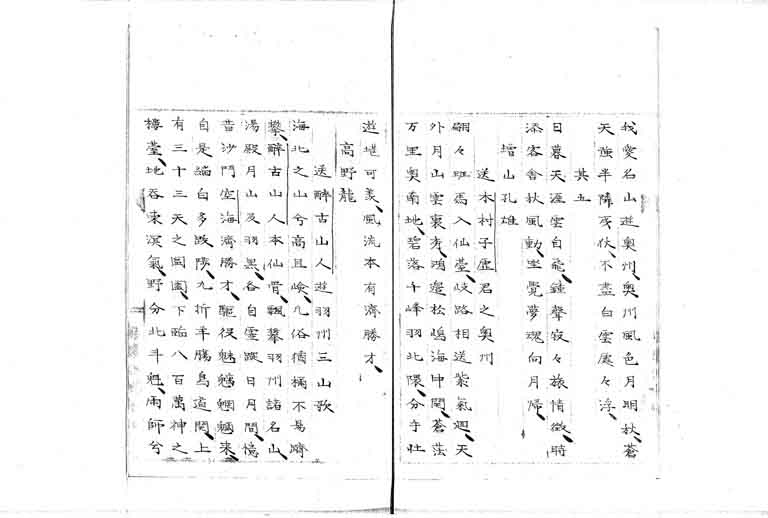 我愛名山遊奧州奧州風色月明秋蒼
天強半隣戎伏不盡白雲處々浮
其五
日暮天涯雲自飛鐘聲寂々旅情微時
添客舍秋風動坐覺夢魂向月歸
增山孔雄
送木村子虛君之奧州
翩々班馬入仙臺岐路相送紫氣迴天
外月山雲裏秀鴻邊松嶋海中開蒼茫
万里奧南地碧落千峰羽北隈分手壯
遊堪可羨風流本有濟勝才
高野龍
送醉古山人遊羽州三山歌
海北之山兮高且峻凡俗 不易躋
攀醉古山人本仙骨飄攀羽州諸名山
湯殿月山及羽黑各自靈蹤日月間憶
昔沙門空海濟勝才驅役魑魅魍魎來
自是 多 九折羊腸鳥道開上
有三十三天之 下臨八百萬神之
樓臺地吞東溟氣野分北斗魁雨師兮